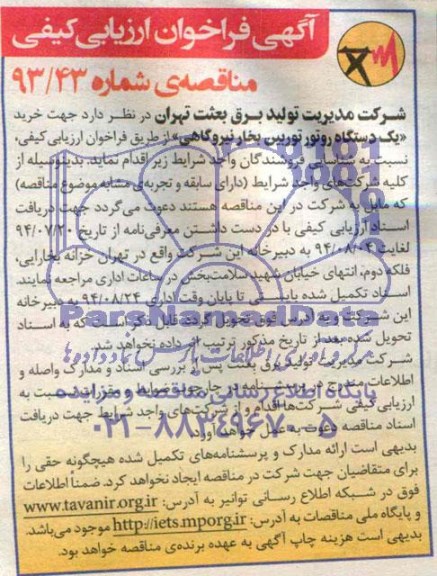 آگهی فراخوان ارزیابی کیفی
مناقصه‌ی شماره ۹۳/۴۳
شرکت مدیریت تولید برق بعثت تهران در نظر دارد جهت خرید
«یک دستگاه روتور توربین بخار نیروگاهی» از طریق فراخوان ارزیابی کیفی،
نسبت به شناسایی فروشندگان واجد شرایط زیر اقدام نماید. بدینوسیله از
کلیه شرکت‌های واجد شرایط (دارای سابقه و تجربه‌ی مشابه موضوع مناقصه)
که مایل به شرکت در این مناقصه هستند دعوت می‌گردد جهت دریافت
اسناد ارزیابی کیفی با در دست داشتن معرفی‌نامه از تاریخ ۹۴/۰۷/۲۰
لغایت ۹۴/۰۸/۰۴ به دبیرخانه این شرکت واقع در تهران خزانه بخارایی،
فلکه دوم، انتهای خیابان شهید سلامت‌بخش در ساعات اداری مراجعه نمایند.
اسناد تکمیل شده بایستی تا پایان وقت اداری ۹۴/۰۸/۲۴ به دبیرخانه
این شرکت و به آدرس فوق تحویل گردد. قابل ذکر است که به اسناد
تحویل شده بعد از تاریخ مذکور ترتیب اثر داده نخواهد شد.
شرکت مدیریت تولید برق بعثت پس از بررسی اسناد و مدارک واصله و
اطلاعات مندرج در پرسشنامه در چارچوب ضوابط و مقررات نسبت به
ارزیابی کیفی شرکت‌ها اقدام و از شرکت‌های واجد شرایط جهت دریافت
اسناد مناقصه دعوت به عمل خواهد آورد.
بدیهی است ارائه مدارک و پرسشنامه‌های تکمیل شده هیچگونه حقی را
برای متقاضیان جهت شرکت در مناقصه ایجاد نخواهد کرد. ضمنا اطلاعات
فوق در شبکه اطلاع رسانی توانیر به آدرس: www.tavanir.org.ir
و پایگاه ملی مناقصات به آدرس: http://iets.mporg.ir موجود می‌باشد.
بدیهی است هزینه چاپ آگهی به عهده برنده‌ی مناقصه خواهد بود.
ParsNamadData
پایگاه اطلاع رسانی مناقصه و مزایده
۰۲۱-۸۸۳۴۹۶۷۰-۵